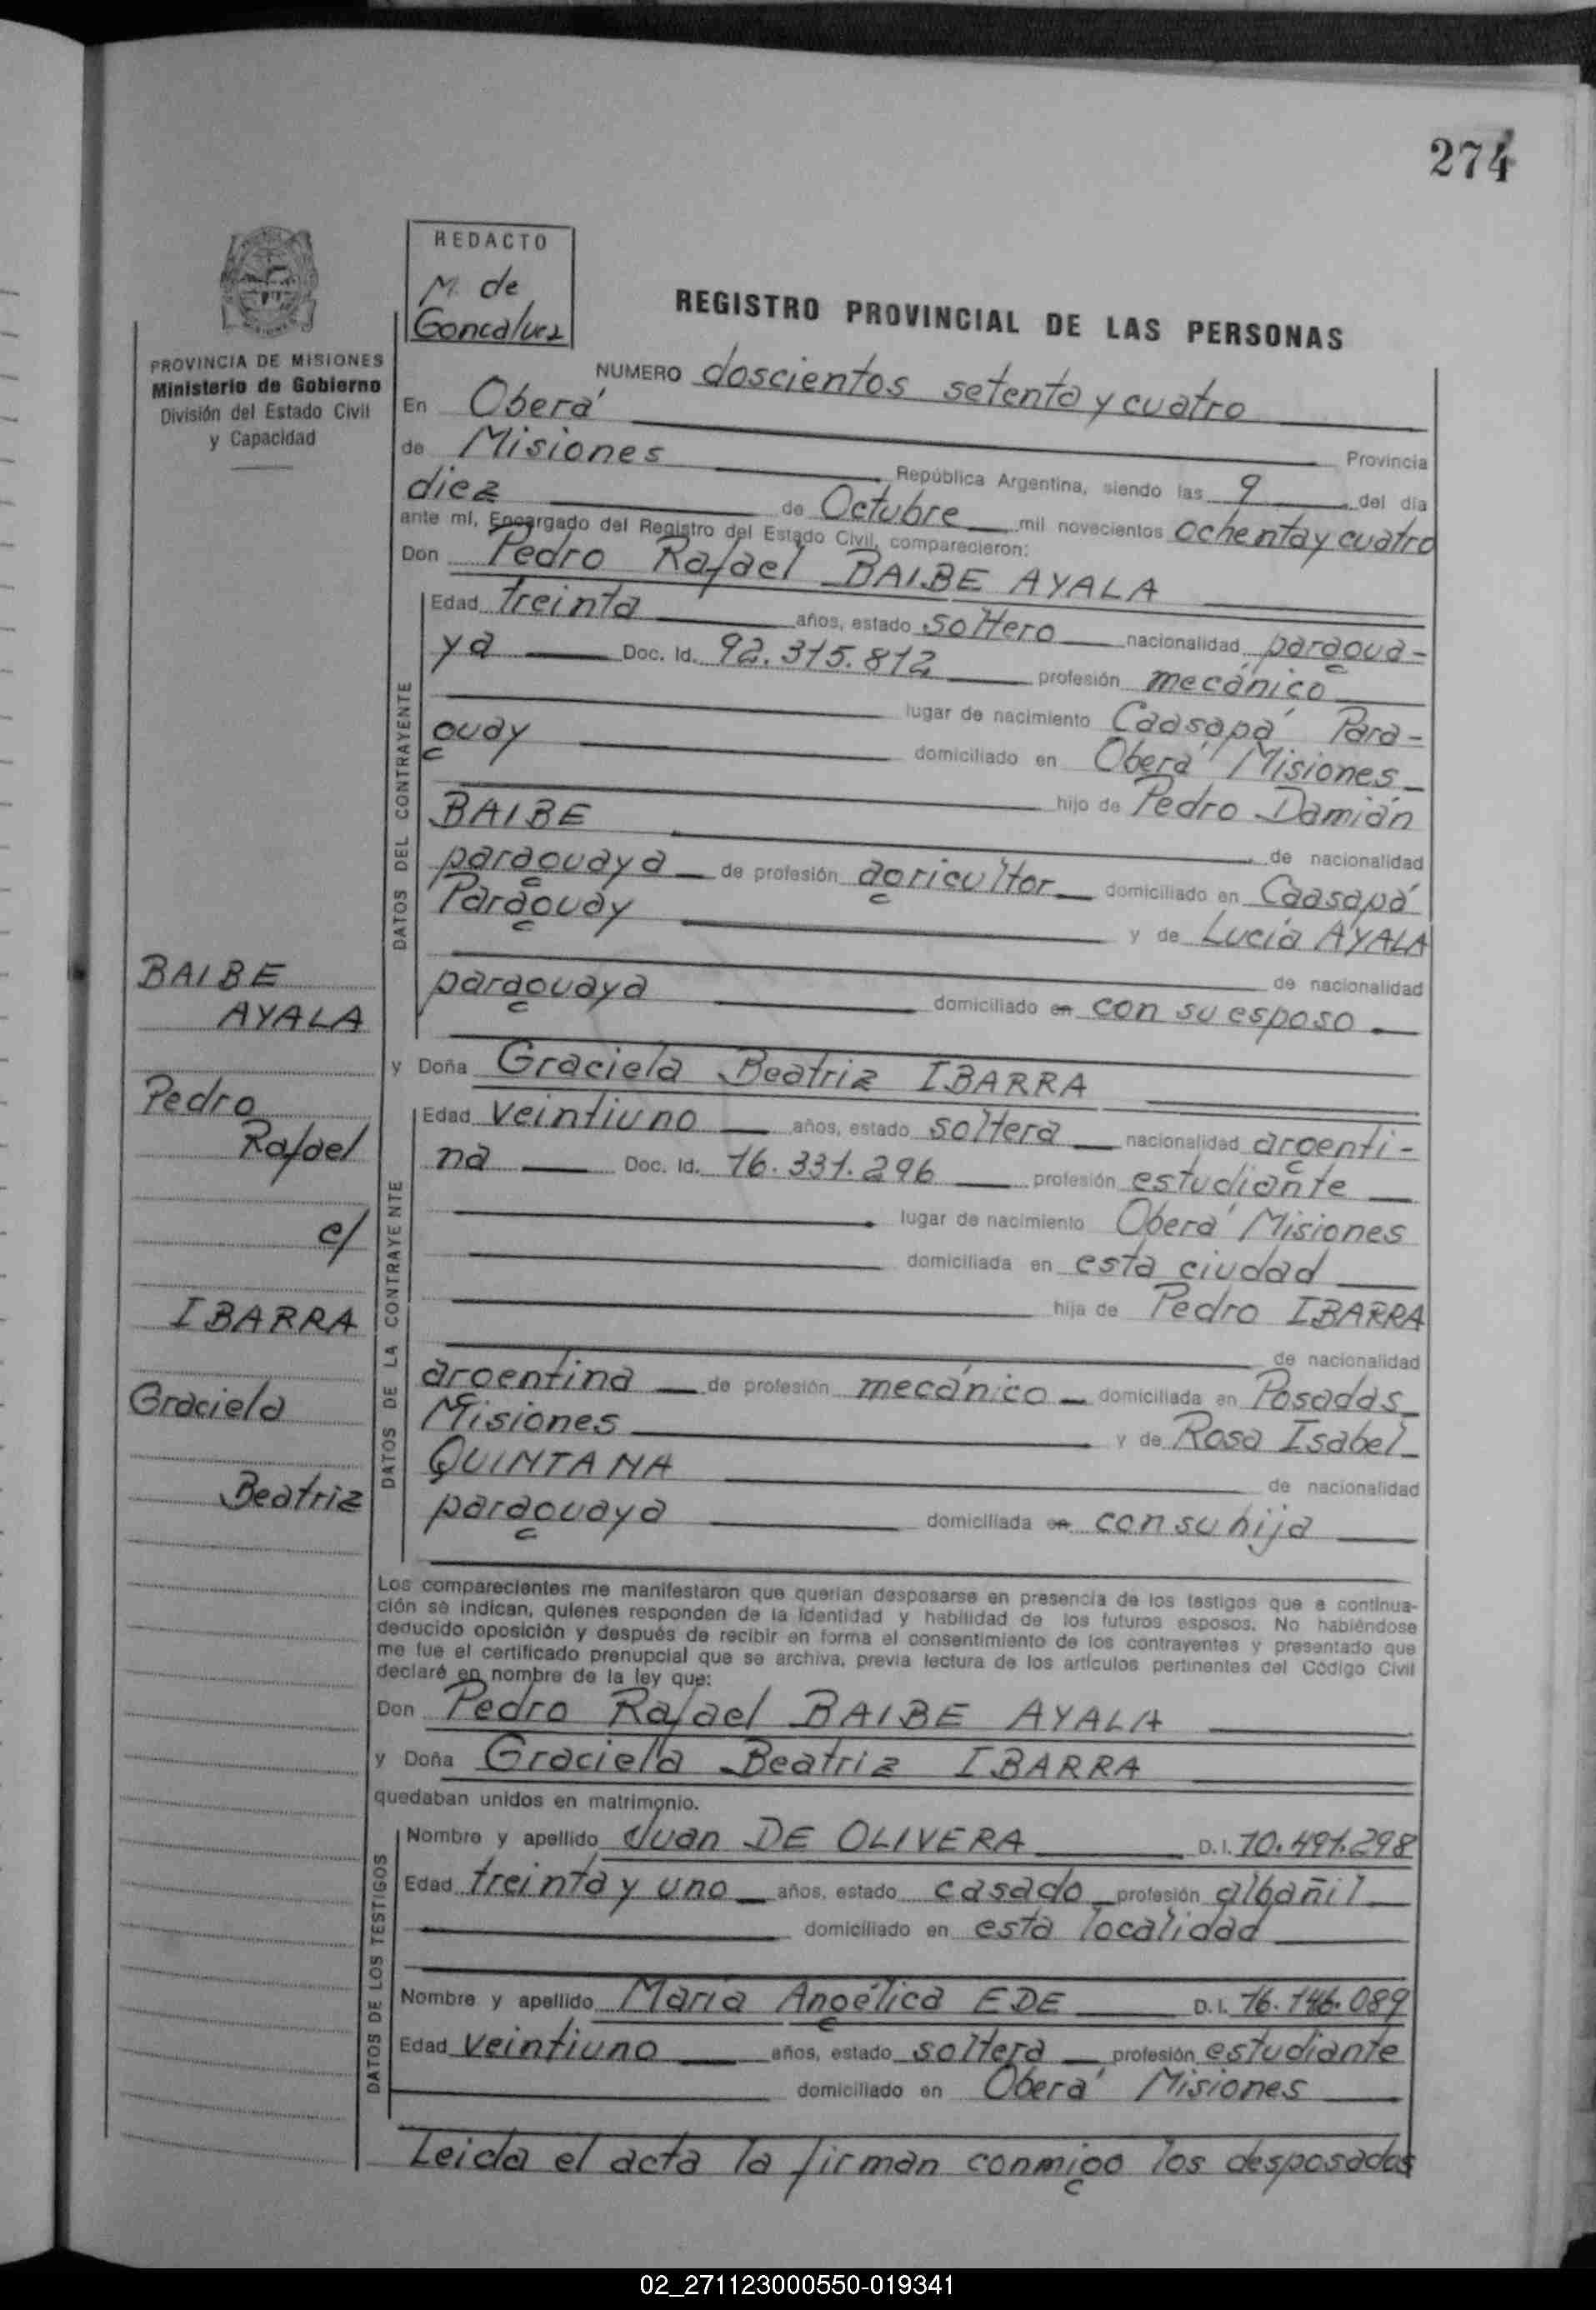 274
REDACTO
M. de
Goncalvez
REGISTRO PROVINCIAL DE LAS PERSONAS
PROVINCIA DE MISIONES
Ministerio de Gobierno
División del Estado Civil
y Capacidad
NUMERO doscientos setenta y cuatro
En Oberá Provincia
de Misiones República Argentina, siendo las 9 del día
diez de Octubre mil novecientos ochenta y cuatro
ante mí, Encargado del Registro del Estado Civil, comparecieron:
Don Pedro Rafael BAIBE AYALA
DATOS DEL CONTRAYENTE
Edad treinta años, estado soltero nacionalidad paragua-
ya Doc. Id. 92.315.812 profesión mecánico
lugar de nacimiento Caasapá Para-
guay domiciliado en Oberá Misiones
hijo de Pedro Damián
BAIBE de nacionalidad
paraguaya de profesión agricultor domiciliado en Caasapá
Paraguay y de Lucía AYALA
de nacionalidad
paraguaya domiciliado en con su esposo
y Doña Graciela Beatriz IBARRA
DATOS DE LA CONTRAYENTE
Edad veintiuno años, estado soltera nacionalidad argenti-
na Doc. Id. 16.331.296 profesión estudiante
lugar de nacimiento Oberá Misiones
domiciliada en esta ciudad
hija de Pedro IBARRA
de nacionalidad
argentina de profesión mecánico domiciliada en Posadas
Misiones y de Rosa Isabel
QUINTANA de nacionalidad
paraguaya domiciliada en con su hija
BAIBE
AYALA
Pedro
Rafael
c/
IBARRA
Graciela
Beatriz
Los comparecientes me manifestaron que querían desposarse en presencia de los testigos que a continua-
ción se indican, quienes responden de la identidad y habilidad de los futuros esposos. No habiéndose
deducido oposición y después de recibir en forma el consentimiento de los contrayentes y presentado que
me fue el certificado prenupcial que se archiva, previa lectura de los artículos pertinentes del Código Civil
declaré en nombre de la ley que:
Don Pedro Rafael BAIBE AYALA
y Doña Graciela Beatriz IBARRA
quedaban unidos en matrimonio.
DATOS DE LOS TESTIGOS
Nombre y apellido Juan DE OLIVERA D.I. 10.491.298
Edad treinta y uno años, estado casado profesión albañil
domiciliado en esta localidad
Nombre y apellido María Angélica EDE D.I. 16.146.089
Edad veintiuno años, estado soltera profesión estudiante
domiciliado en Oberá Misiones
Leida el acta la firman conmigo los desposados
02_271123000550-019341